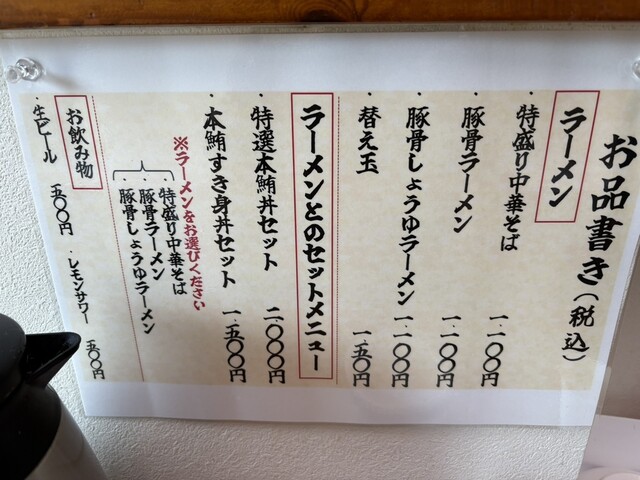 お品書き（税込）
ラーメン
・特盛り中華そば 一.一〇〇円
・豚骨ラーメン 一.一〇〇円
・豚骨しょうゆラーメン 一.一〇〇円
・替え玉 一五〇円
ラーメンとのセットメニュー
・特選本鮪丼セット 二.〇〇〇円
・本鮪すき身丼セット 一.五〇〇円
※ラーメンをお選びください
・特盛り中華そば
・豚骨ラーメン
・豚骨しょうゆラーメン
お飲み物
・生ビール 五〇〇円
・レモンサワー 五〇〇円